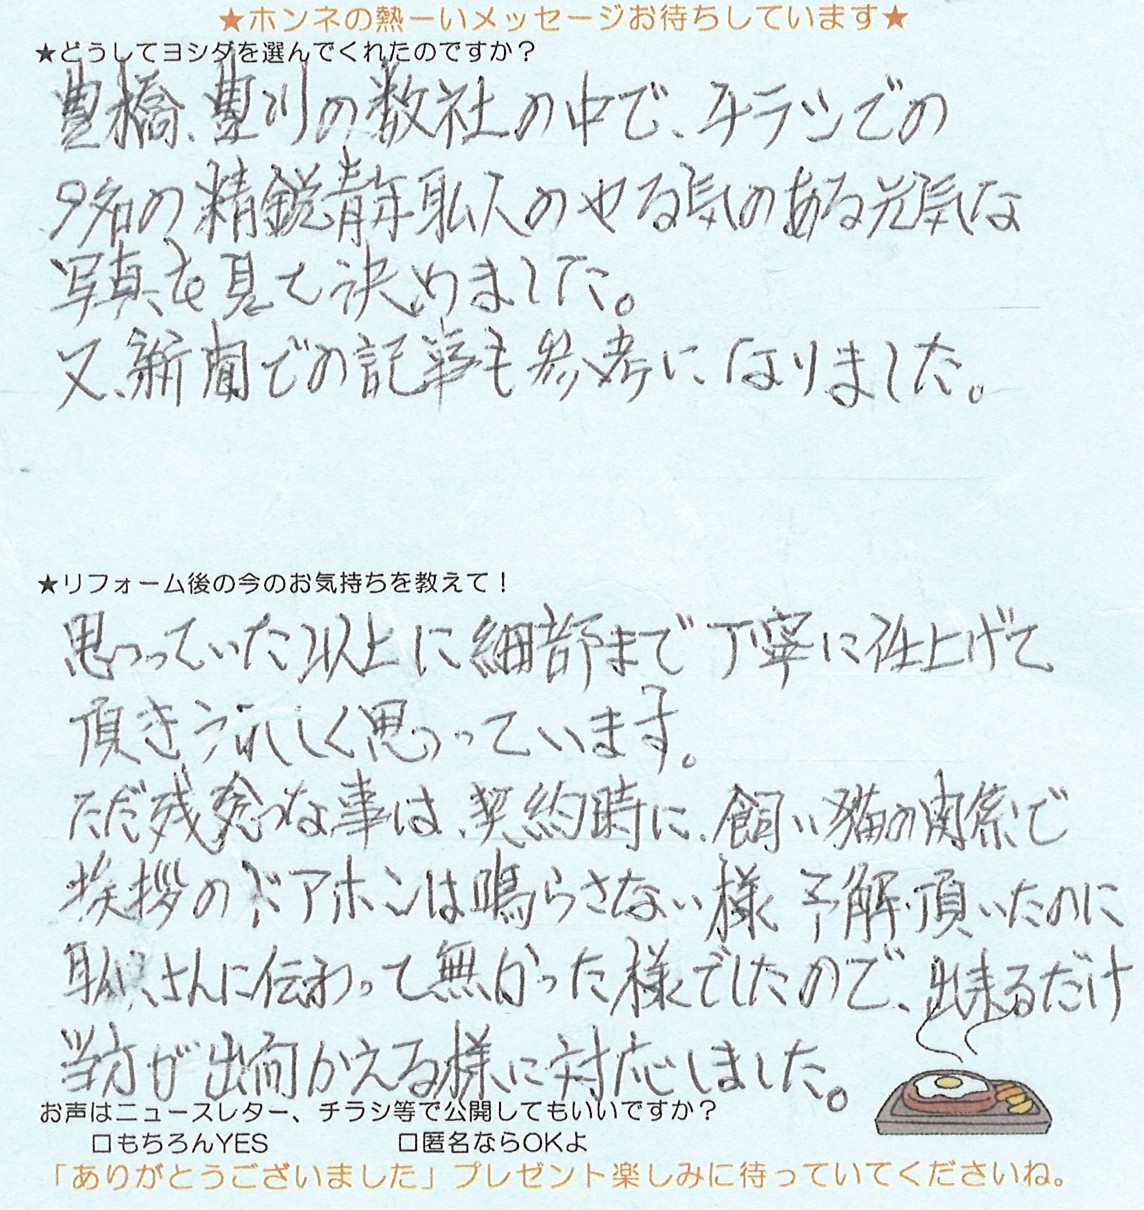 ★ホンネの熱ーいメッセージお待ちしています★
★どうしてヨシダを選んでくれたのですか？
豊橋、豊川の数社の中で、チラシでの
9名の精鋭青年職人のやる気のある元気な
写真を見て決めました。
又、新聞での記事も参考になりました。
★リフォーム後の今のお気持ちを教えて！
思っていた以上に細部まで丁寧に仕上げて
頂きうれしく思っています。
ただ残念な事は、契約時に、飼い猫の関係で
挨拶のドアホンは鳴らさない様、予解頂いたのに
職人さんに伝わって無かった様でしたので、出来るだけ
当方が出向かえる様に対応しました。
お声はニュースレター、チラシ等で公開してもいいですか？
□もちろんYES □匿名ならOKよ
「ありがとうございました」プレゼント楽しみに待っていてくださいね。